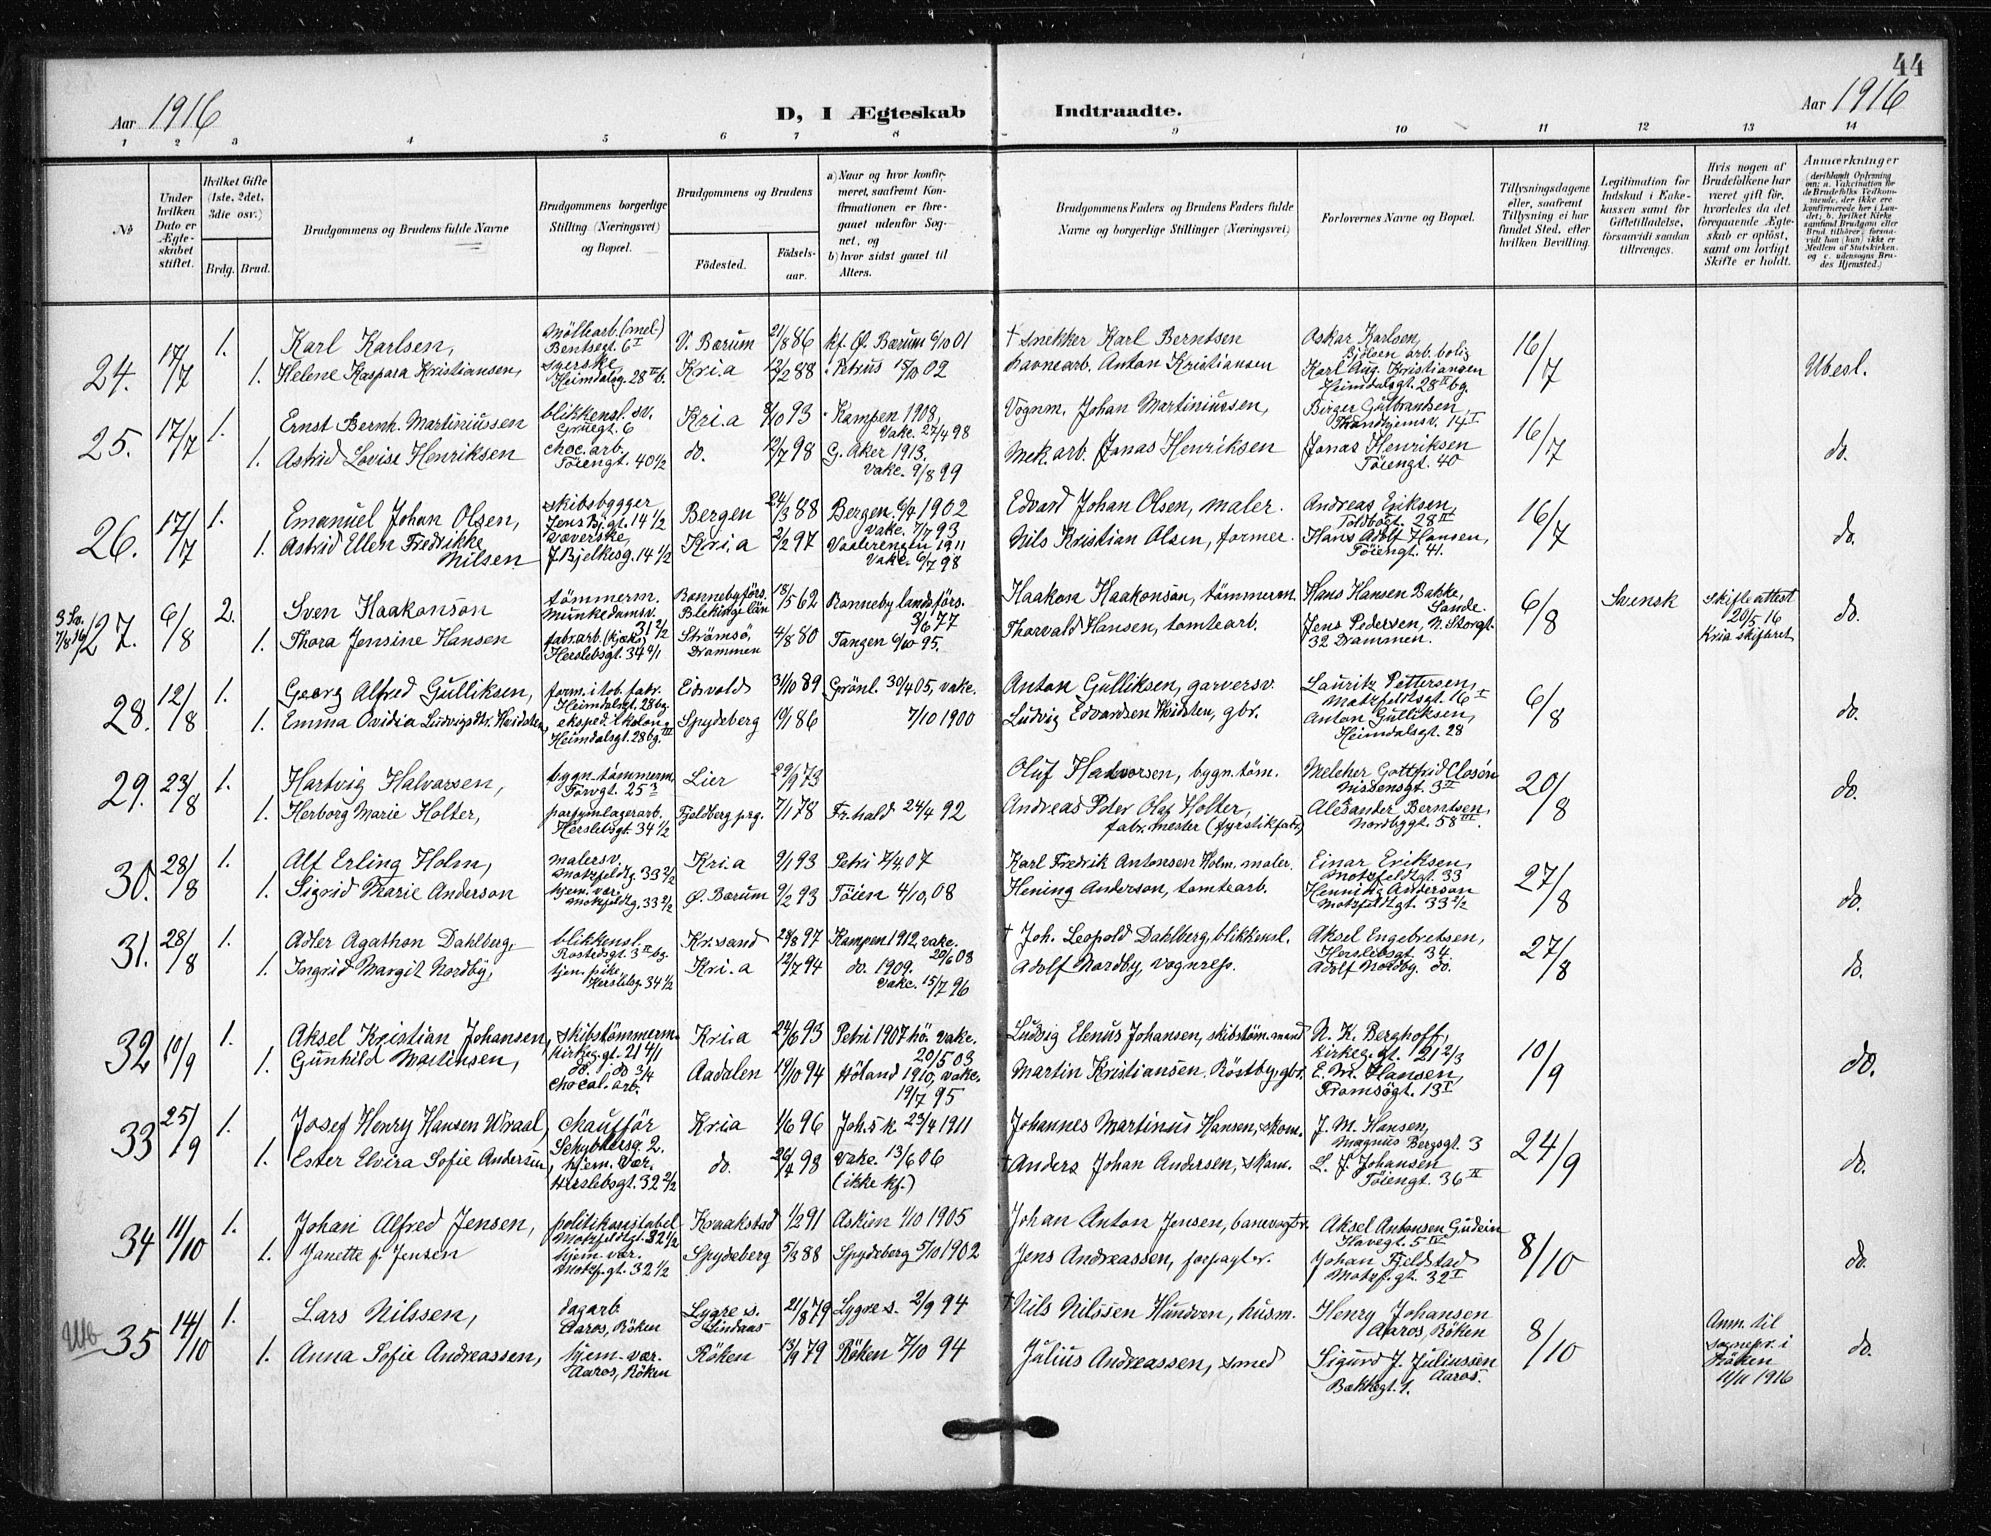 44
Aar 1916
D, I Ægteskab Indtraadte.
Aar 1916
1 2 3 4 5 6 7 8 9 10 11 12 13 14
No
Under hvilken Dato er Ægteskabet stiftet.
Hvilket Gifte (1ste, 2det, 3die osv.)
Brdg. Brud.
Brudgommens og Brudens fulde Navne
Brudgommens borgerlige Stilling (Næringsvei) og Bopæl.
Brudgommens og Brudens
Fødested.
Fødselsaar.
a) Naar og hvor konfirmeret, saafremt Konfirmationen er foregaaet udenfor Sognet, og
b) hvor sidst gaaet til Alters.
Brudgommens Faders og Brudens Faders fulde Navne og borgerlige Stillinger (Næringsvei)
Forlovernes Navne og Bopæl.
Tillysningsdagene eller, saafremt Tillysning ei har fundet Sted, efter hvilken Bevilling.
Legitimation for Indskud i Enkekassen samt for Giftetilladelse, forsaavidt saadan tiltrænges.
Hvis nogen af Brudefolkene har været gift før, hvorledes da det foregaaende Ægteskab er opløst, samt om lovligt Skifte er holdt.
Anmærkninger
(deriblandt Oplysning om: a. Vakcination for de Brudefolks Vedkommende, der ikke ere konfirmerede her i Landet; b. hvilket Kirkesamfund Brudgom eller Brud tilhører, forsaavidt han (hun) ikke er Medlem af Statskirken, og c. udensogns Brudes Hjemsted.)
24. 17/7 1. Karl Karlsen, Møllearb. (mel) Bentsegt. 6 I V. Bærum 21/8 86 kf. Ø. Bærum 6/10 01 † snekker Karl Berntsen Oskar Karlsen, Bjölsen arb. bolig 16/7 Ubesl.
1. Helene Kaspara Kristiansen, syerske Heimdalsg. 28 II b. Kr.i.a 12/2 88 Petrus 15/10 02 havnearb. Anton Kristiansen Karl Aug. Kristiansen Heimdalsgt. 28 II bg.
25. 17/7 1. Ernst Bernh. Martiniussen blikkensl. sv. Gruegt. 6 Kr.i.a 8/10 93 Kampen 1908, Vakc. 27/4 98 Vognm. Johan Martiniussen, Birger Gulbrandsen, Trondhjemsv. 14 I 16/7 do.
1. Astrid Lovise Henriksen choc. arb. Töiengt. 40 1/2 do. 12/7 98 G. Aker 1913, Vakc. 9/8 99 Mek. arb. Jonas Henriksen Jonas Henriksen Töiengt. 40
26. 17/7 1. Emanuel Johan Olsen, skibsbygger Jens Bj. gt. 14 1/2 Bergen 24/3 88 Bergen 6/4 1902 Vakc. 7/7 93 Edvard Johan Olsen, maler. Andreas Eriksen, Toldbogt. 28 II 16/7 do.
1. Astrid Ellen Fredrikke Nilsen væverske, J. Bjelkesg. 14 1/2 Kr.i.a 2/2 97 Vaalerengen 1911 Vakc. 6/7 98 Nils Kristian Olsen, former. Hans Adolf Hansen, Töiengt. 41.
3 Sv. 7/8 16
27. 6/8 2. Sven Haakonson tömmerm. Munkedamsv. 31 2/2 Ronneby förs. Blekinge län 18/5 62 Ronneby landsförs. 3/6 77 Haakon Haakonson, tömmerm. Hans Hansen Bakke, Sande. 6/8 Svensk Skifteattest 20/5 16 Kria skifteret do.
1. Thora Jensine Hansen fabr. arb. (kjeks) Herslebsgt. 34 4/1 Strømsö Drammen 4/8 80 Tangen 6/10 95. Thorvald Hansen, tomtearb. Jens Pedersen, N. Storgt. 32 Drammen.
28. 12/8 1. Georg Alfred Gulliksen, form. i tob. fabr. Heimdalsgt. 28 bg. Eidsvold 31/10 89 Grönl. 30/4 05, vakc. 7/10 1900 Anton Gulliksen, garversv. Lauritz Pettersen, Motzfeldtsgt. 16 I 6/8 do.
1. Emma Ovidia Ludvigsdtr. Hvidsten, eksped. i kolon. Heimdalsgt. 28 bg. III Spydeberg 19/1 86 Ludvig Edvardsen Hvidsten, gbr. Anton Gulliksen, Heimdalsgt. 28
29. 23/8 1. Hartvig Halvorsen, bygn.tömmerm. Torvgt. 25 3 Lier 29/9 73 Oluf Halvorsen, bygn. töm. Melcher Gottfrid Closön Nissensgt. 3 II 20/8 do.
1. Herborg Marie Holter, parfymlagerarb. Herslebsgt. 34 1/2 Fjeldberg prg. 7/1 78 Fr.hald 24/4 92 Andreas Peter Olaf Holter, fabr. mester (fyrstikfabr.) Alexander Berntsen, Nordbygt. 58 III.
30. 28/8 1. Alf Erling Holm, malersv. Motzfeldtg. 33 2/2 Kr.i.a 9/1 93 Petri 7/4 07 Karl Fredrik Antonsen Holm, maler. Einar Eriksen, Motzfeldtgt. 33 27/8 do.
1. Sigrid Marie Anderson hjem. vær. Motzfeldtg. 33 2/2 Ø. Bærum 9/2 93 Töien 4/10, 08 Hening Anderson, tomtearb. Henning Anderson Motzfeldtgt. 33 2/2
31. 28/8 1. Adler Agathon Dahlberg, blikkensl. Rostedsgt. 3 II bg. Kr.sand 28/8 97 Kampen 1912, vakc. 20/6 08 † Joh. Leopold Dahlberg, blikkensl. Aksel Engebretsen, Herslebsgt. 34. 27/8 do.
1. Ingrid Margit Nordby, hjem. pike Herslebsg. 34 1/2 Kr.i.a 12/7 94 do. 1909. Vakc. 15/7 96 Adolf Nordby, vognrep. Adolf Nordby. do.
32 10/9 1. Aksel Kristian Johansen, skibstömmerm. Kirkeg. gt. 21 4/1 Kr.i.a 24/6 93 Petri 1907 hö. vakc. 20/5 03 Ludvig Elenus Johansen, skibstöm. mand N. K. Berghoff, Kirkeg. gt. 21 2/3 10/9 do.
1. Gunhild Martinsen, do. do 3/4 Chocol. arb. Aadalen 19/10 94 Höland 1910, vakc. 19/7 95 Martin Kristiansen Röstby, gbr. E. M. Hansen, Tromsögt. 13 I
33 25/9 1. Josef Henry Hansen Wraal, chaufför Schyblersg. 2. Kria 1/6 96 Joh.s k. 23/4 1911 Johannes Martinus Hansen, skom. J. M. Hansen, Magnus Bergsgt. 3 24/9 do.
1. Ester Elvira Sofie Andersen, hjem. vær. Herslebsgt. 32 2/2 do. 26/4 98 Vakc. 13/6 06 (ikke kf.) † Anders Johan Andersen, skom. L. J. Johansen Töiengt. 36 IV
34 11/10 1. Johan Alfred Jensen, politikonstabel Motzfeldtgt. 32 1/2 Kraakstad 1/2 91 Askim 1/10 1905 Johan Anton Jensen, banevogter. Aksel Antonsen Gudein Havegt. 5 IV 8/10 do.
1. Janette f. Jensen hjem. vær. Motzf. gt. 32 1/2 Spydeberg 5/3 88 Spydeberg 5/10 1902 Jens Andreassen, forpagter. Johan Fjeldstad Motzf. gt. 32 I
Utb
35 14/10 1. Lars Nilssen, dagarb. Aaros, Röken Lygre s. Lindaas 21/8 79 Lygre s. 2/9 94 † Nils Nilssen Hundven, husm. Henry Johansen Aaros, Röken 8/10 Anm. til sognepr. i Röken 11/11 1916 do.
1. Anna Sofie Andreassen, hjem. vær. Aaros, Röken Röken 13/9 79 Röken 7/10 94 Julius Andreassen, smed Sigurd J. Juliussen Aaros. Bakkegt. 1.